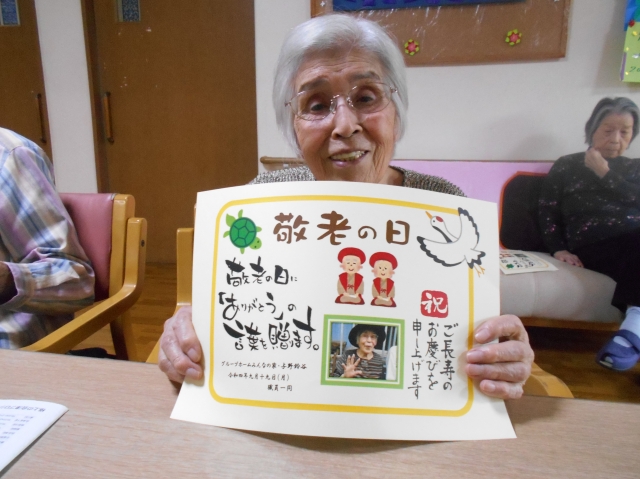 敬老の日
敬老の日に
「ありがとう」の
言葉を贈ります。
グループホームみんなの家・与野鈴谷
令和四年九月十九日(月)
職員一同
祝
ご長寿の
お慶びを
申し上げます